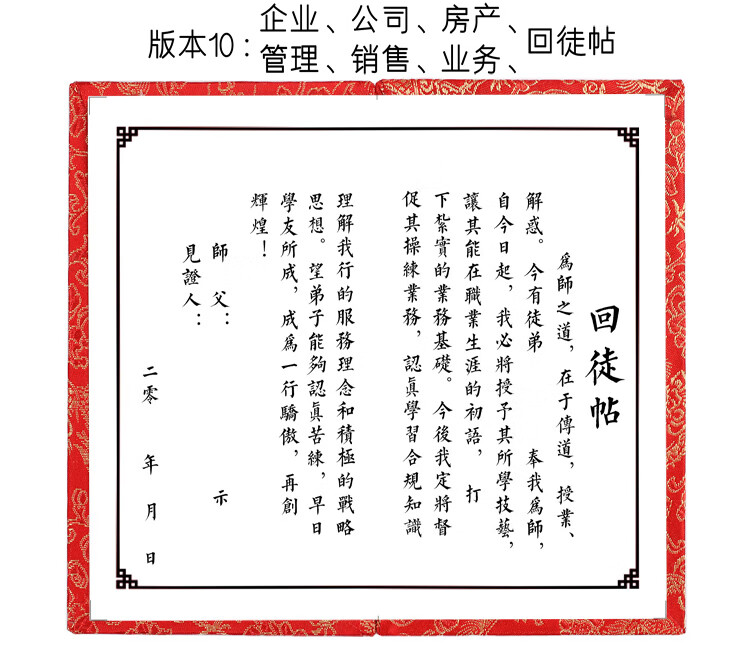 版本10：企业、公司、房产、管理、销售、业务、回徒帖
回徒帖
爲師之道，在于傳道，授業、
解惑。今有徒弟 奉我爲師，
自今日起，我必將授予其所學技藝，
讓其能在職業生涯的初語，打
下紮實的業務基礎。今後我定將督
促其操練業務，認眞學習合規知識
理解我行的服務理念和積極的戰略
思想。望弟子能夠認眞苦練，早日
學友所成，成爲一行驕傲，再創
輝煌！
師父： 示
見證人：
二零 年 月 日